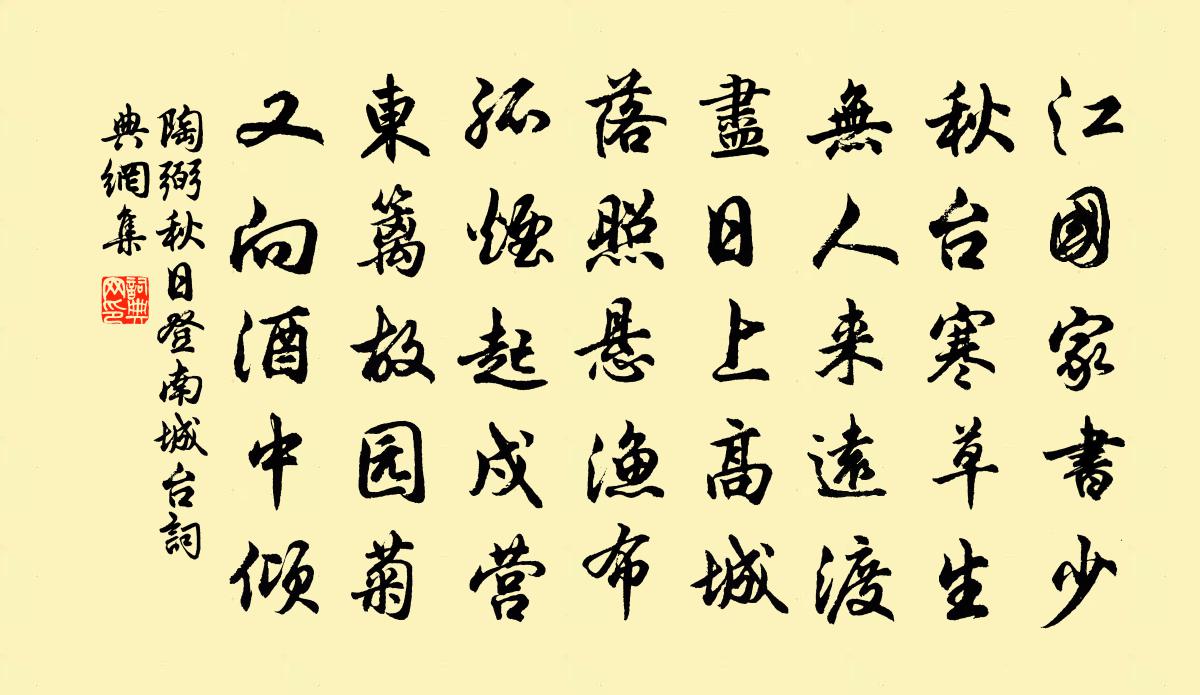 江國家書少
秋台寒草生
無人来遠渡
盡日上高城
落照悬漁布
孤煙起戍营
東籬故园菊
又向酒中倾
陶弼秋日登南城台詞
典網集
詞典
网印